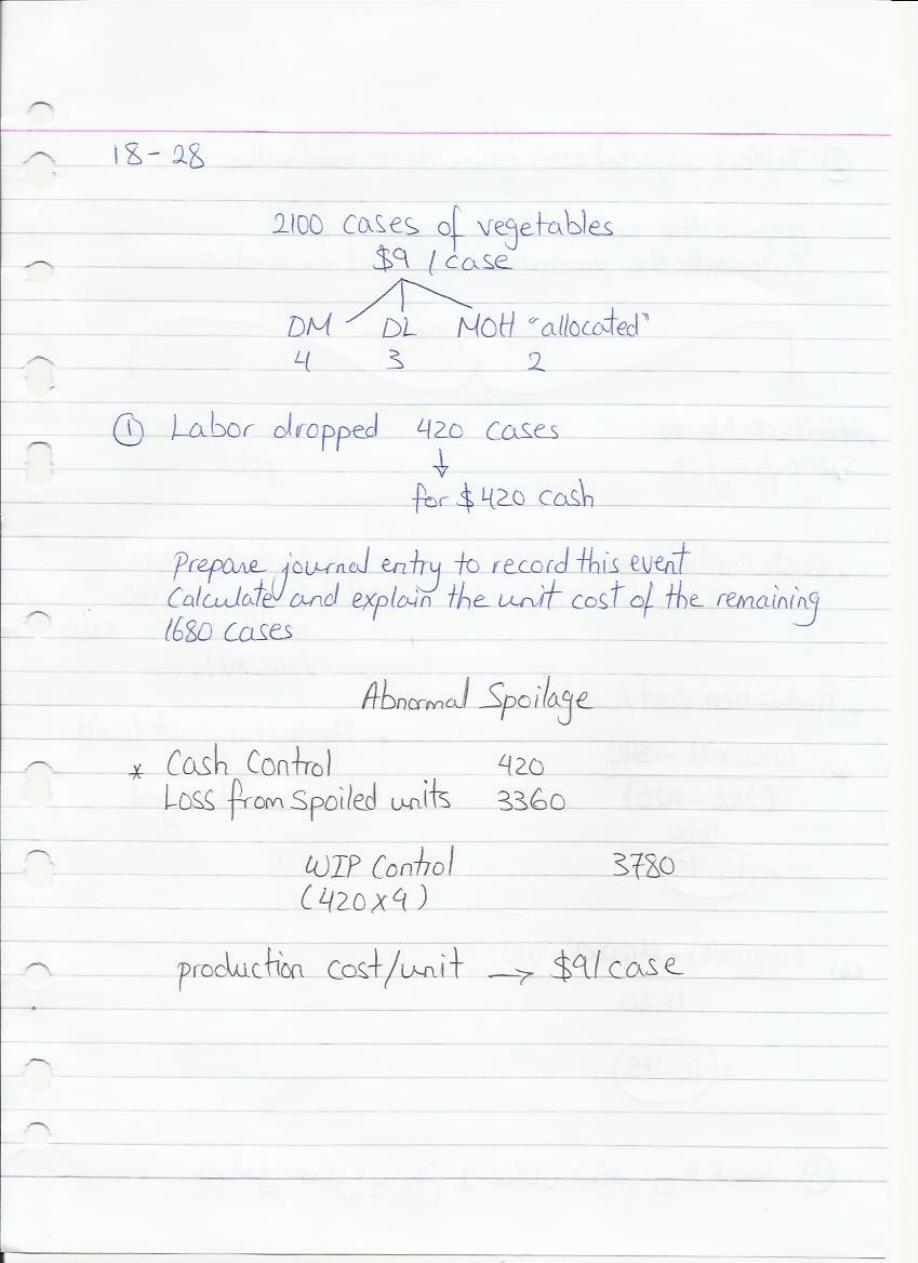 18-28
2100 cases of vegetables
$9 / case
DM DL MOH "allocated"
4 3 2
① Labor dropped 420 cases
↓
for $420 cash
Prepare journal entry to record this event
Calculate and explain the unit cost of the remaining
1680 cases
Abnormal Spoilage
* Cash Control 420
Loss from spoiled units 3360
WIP Control 3780
(420x9)
production cost/unit → $9/case